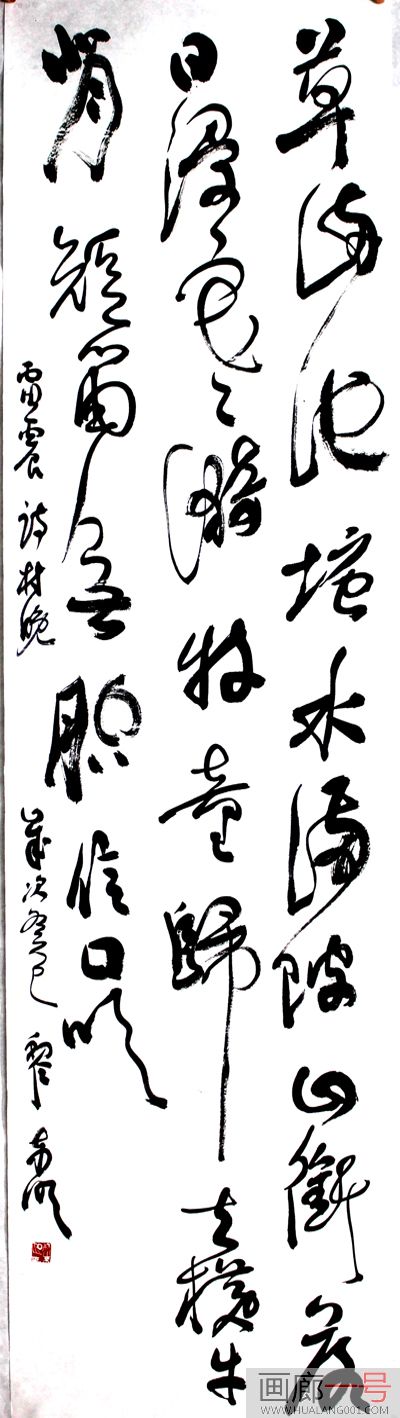 草滿池塘水滿陂山銜落
日浸寒漪牧童歸去橫牛
背短笛無腔信口吹
雷震詩村晚 歲次癸巳
画廊一号
WWW.HUALANG001.COM